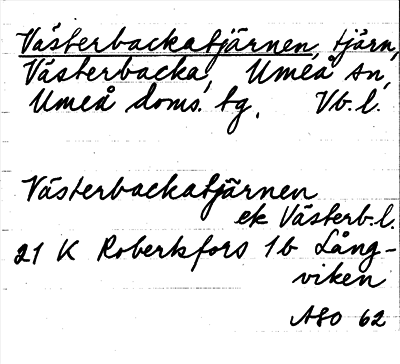 Västerbackatjärnen, tjärn,
Västerbacka, Umeå sn,
Umeå doms. tg. Vb. l.
Västerbackatjärnen
ek Västerb. l.
21 K Robertsfors 1b Lång-
viken
ASO 62